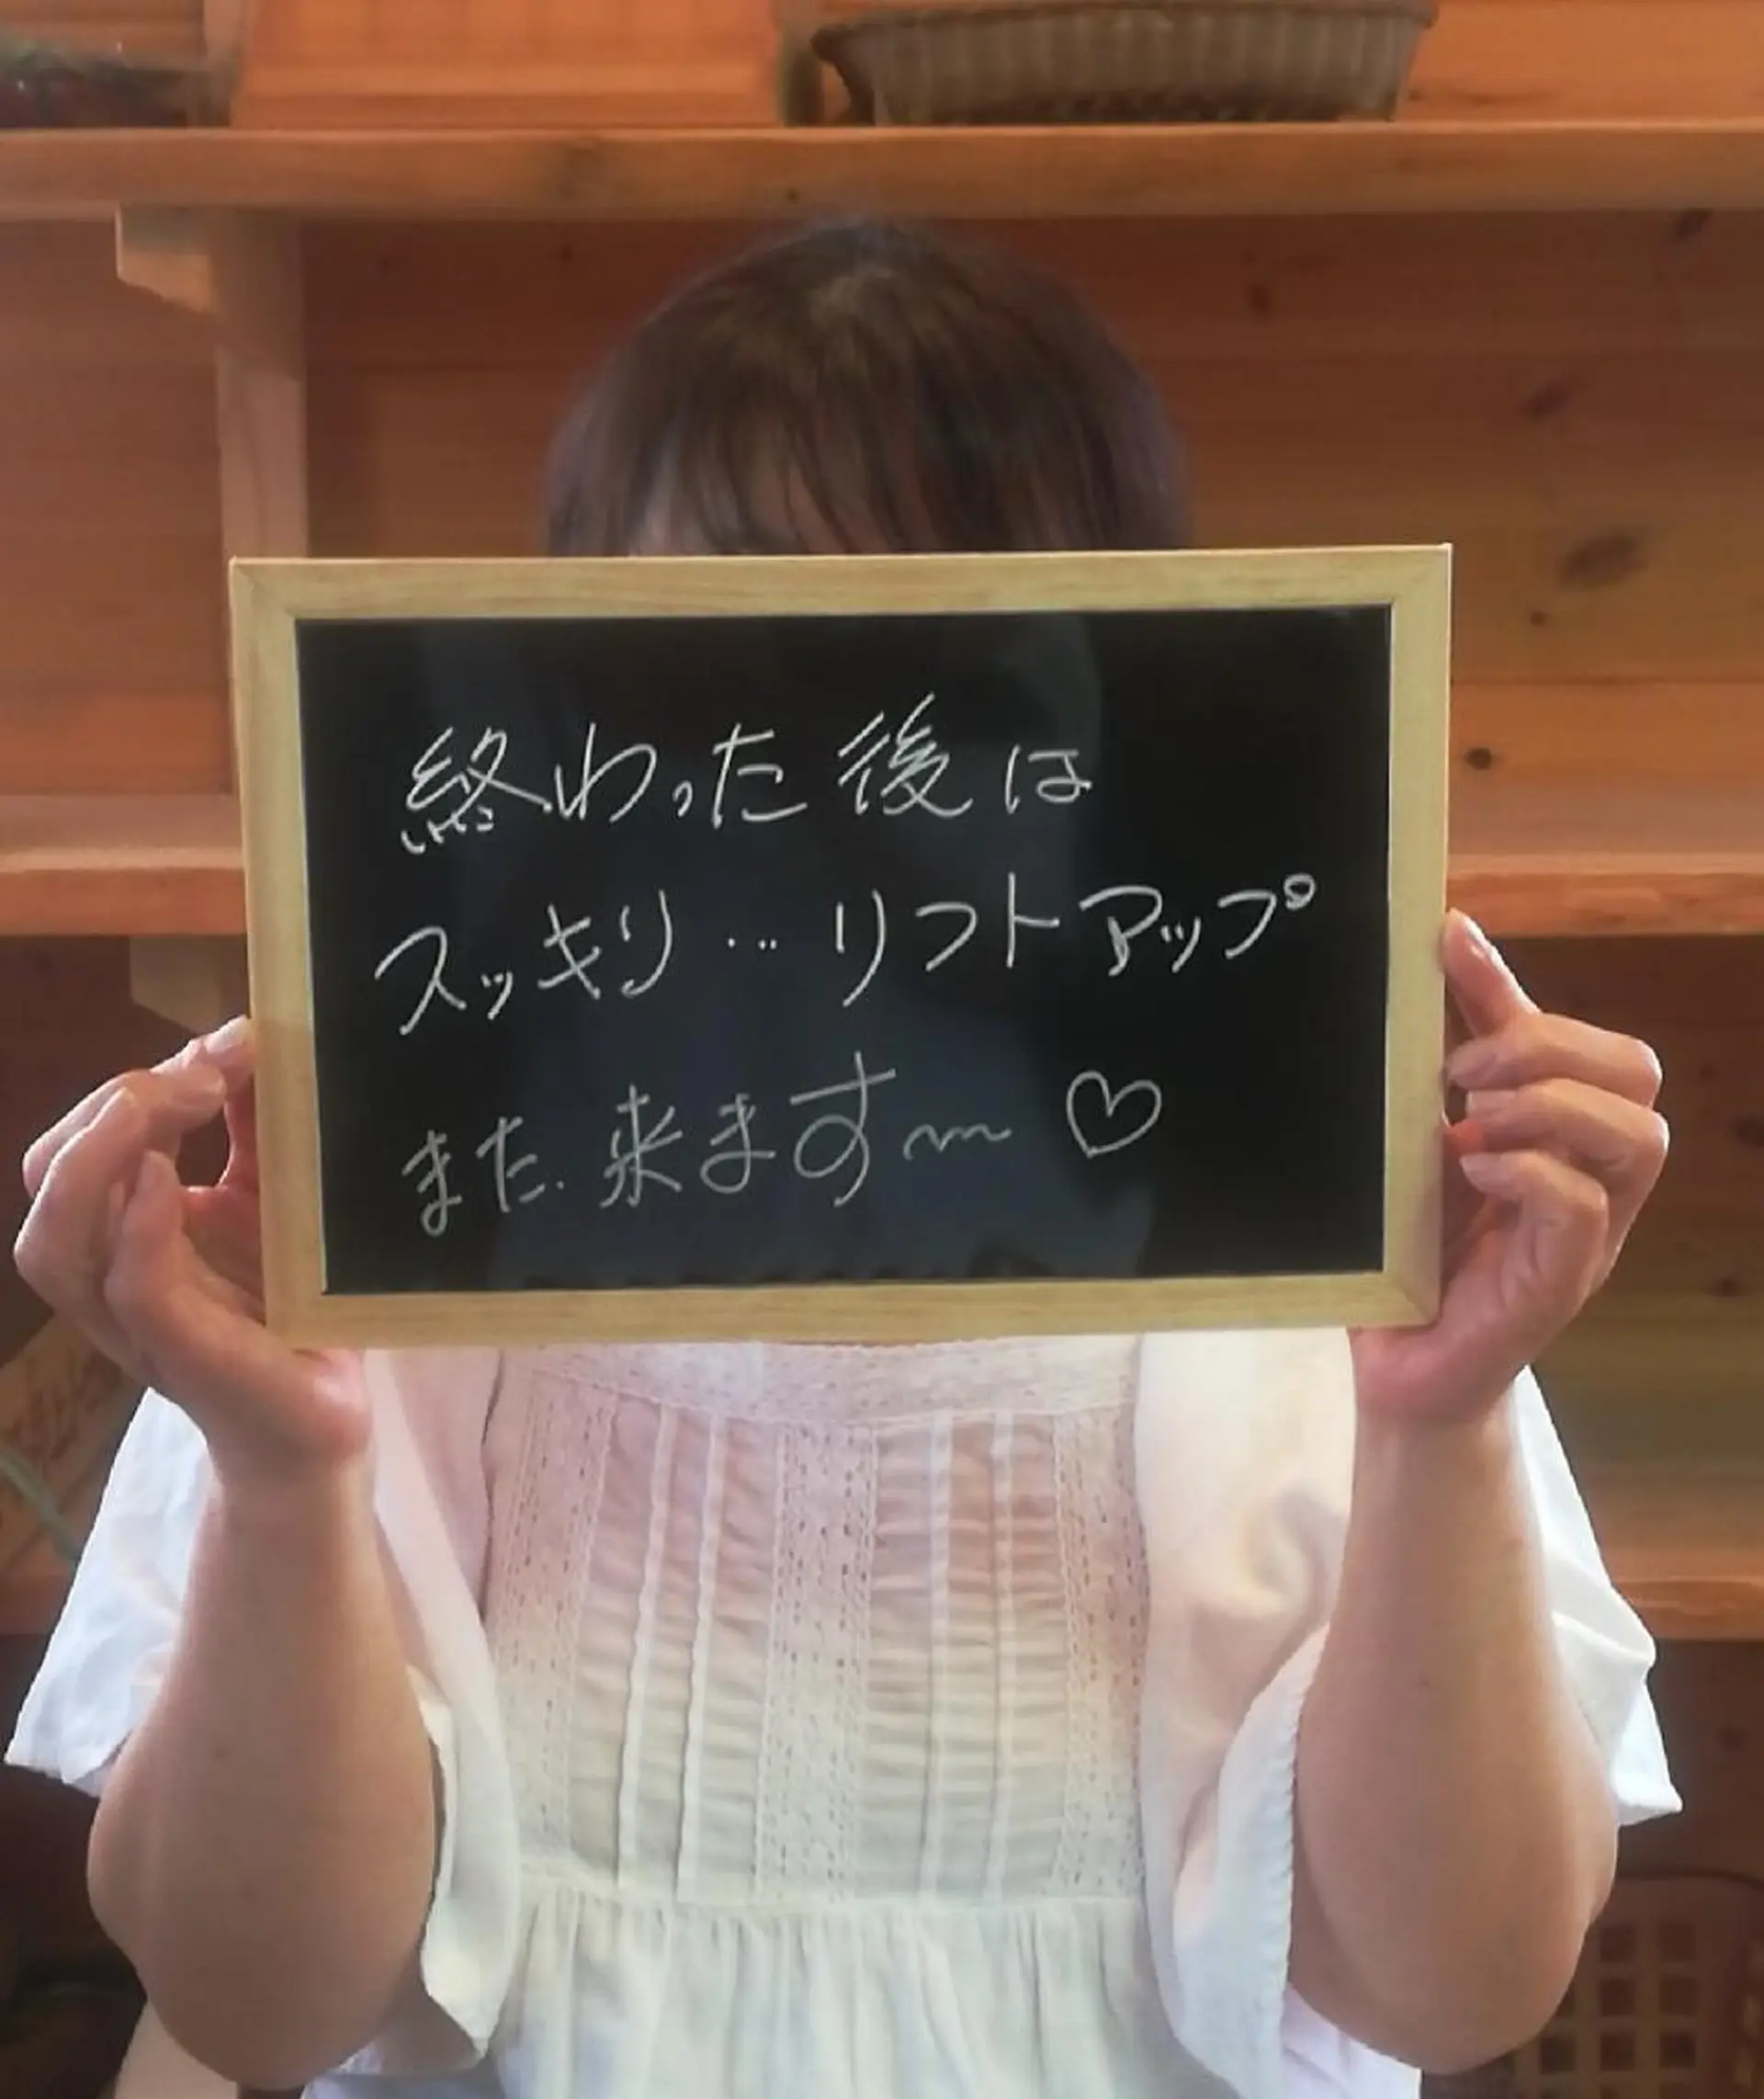 終わった後は
スッキリ…リフトアップ
また来ます〜♡